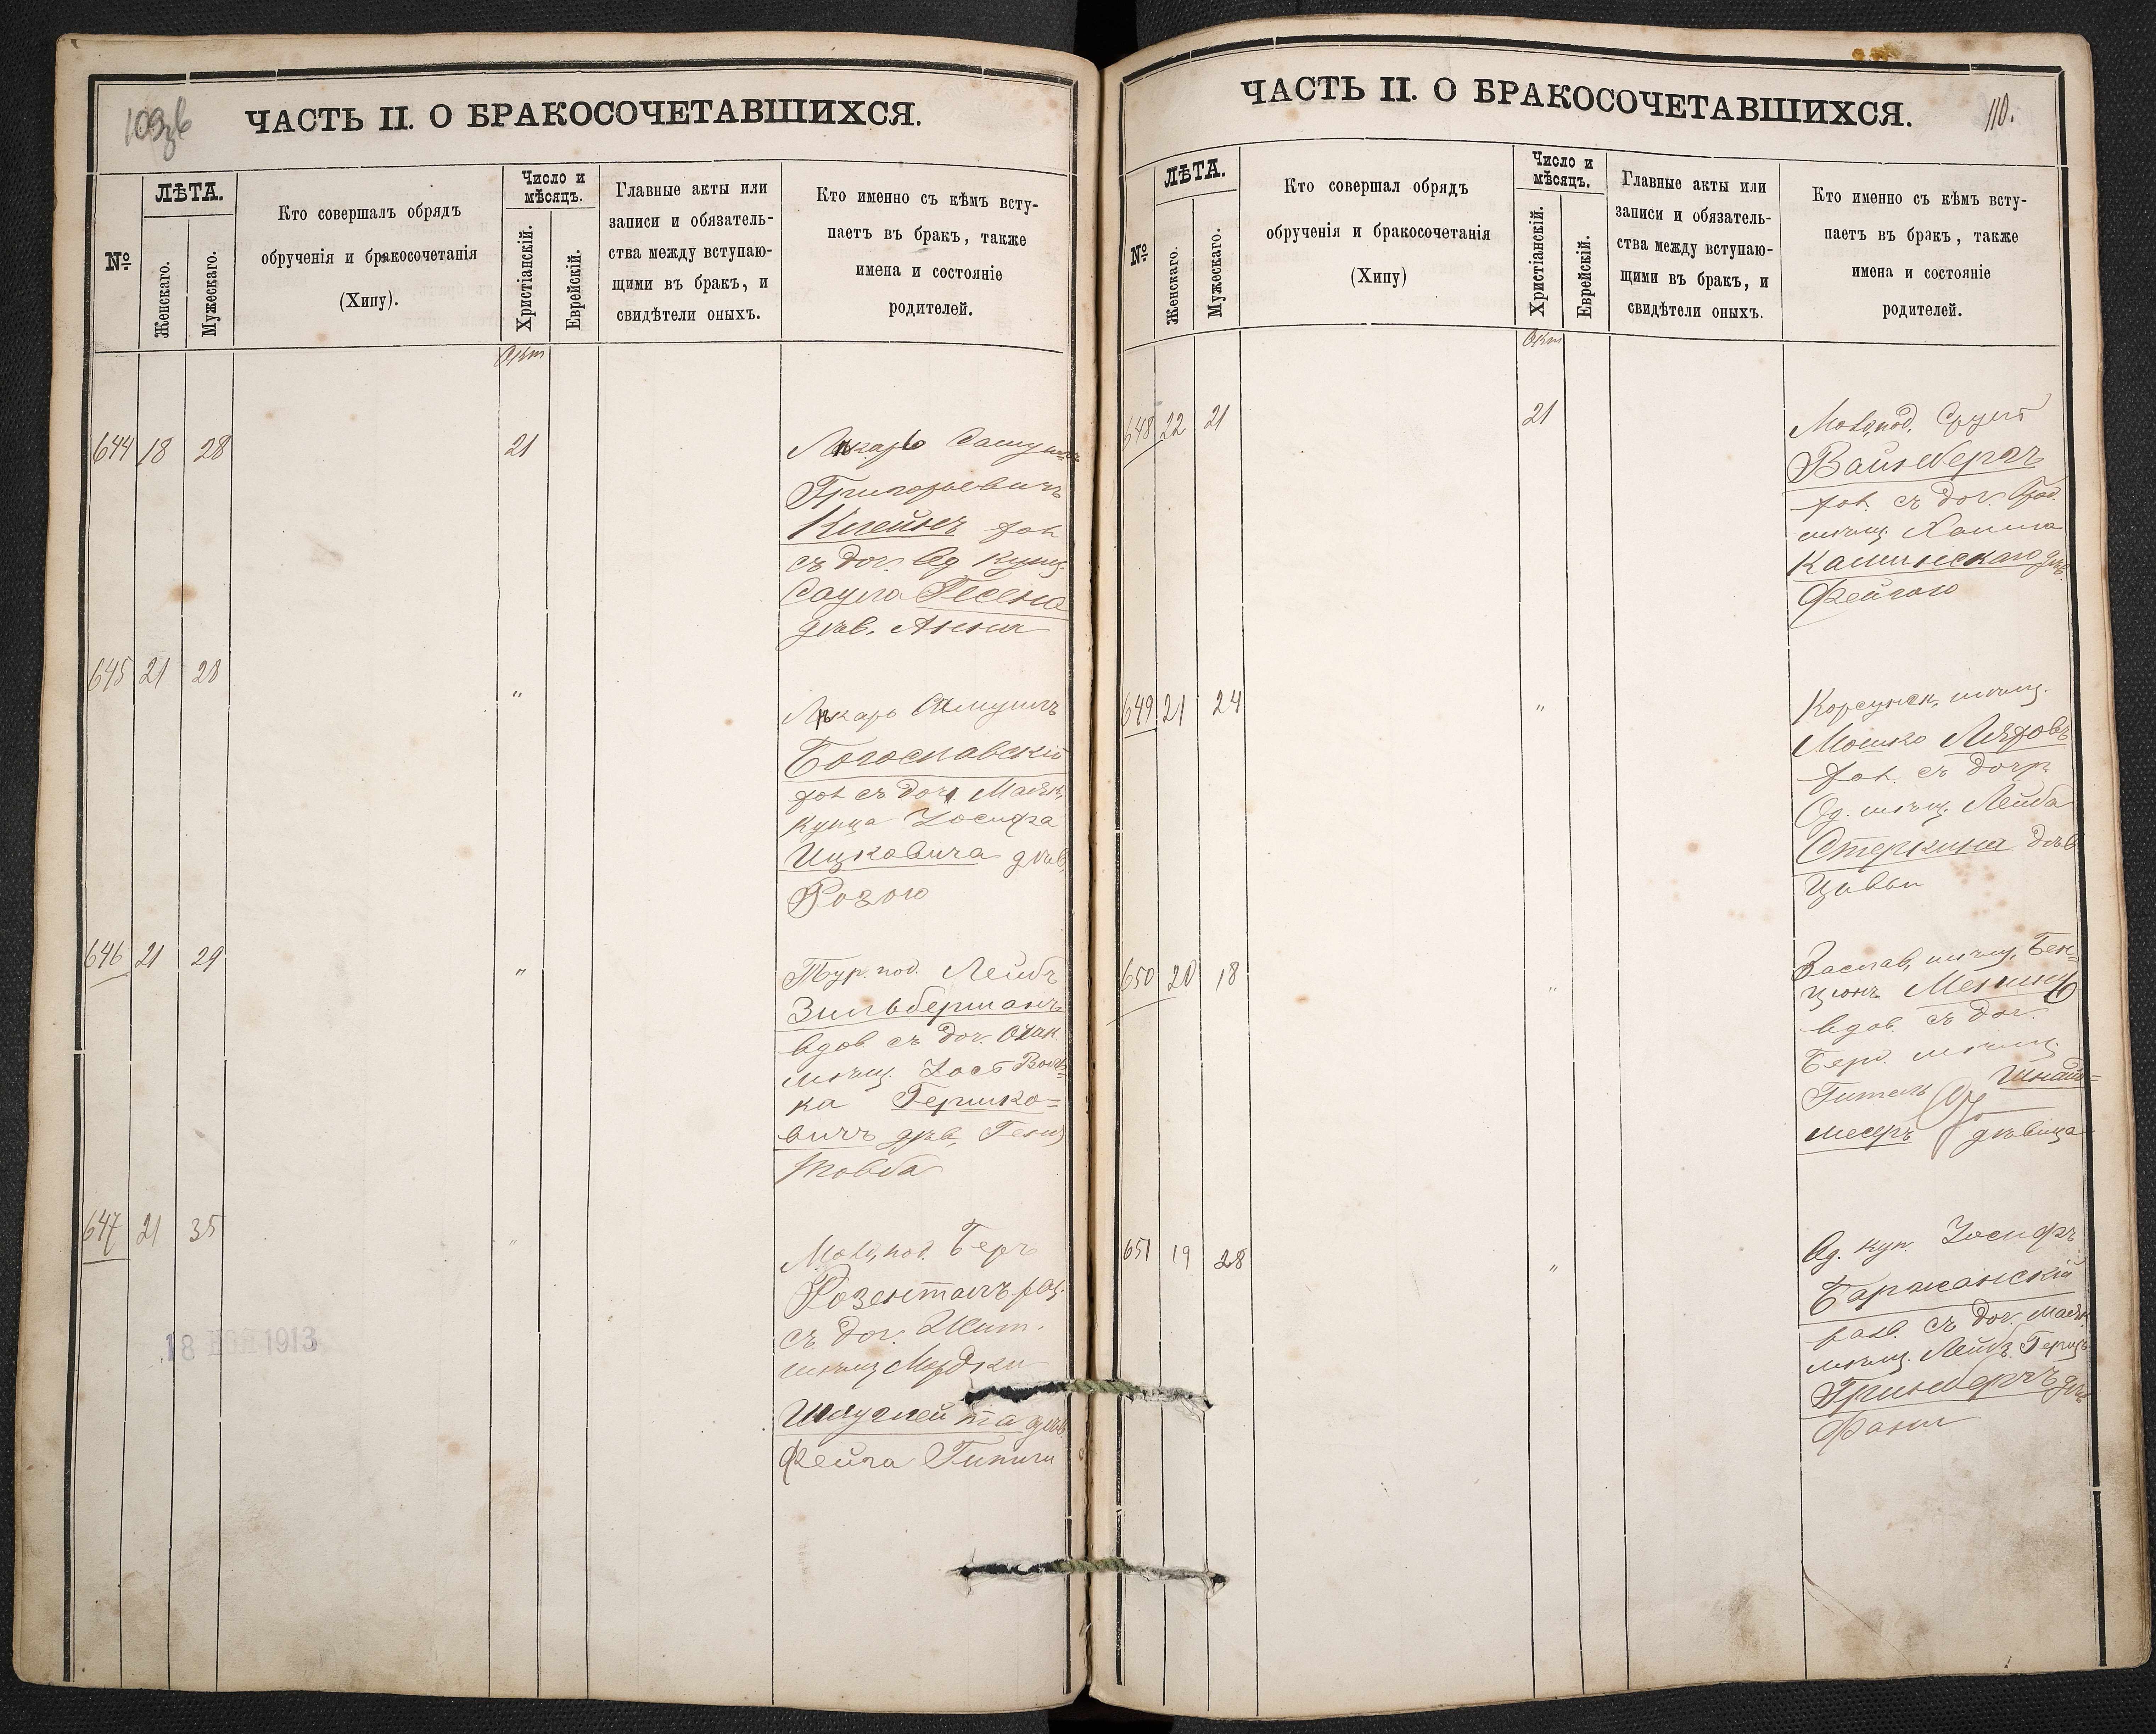 109 об
ЧАСТЬ II. О БРАКОСОЧЕТАВШИХСЯ.
№
ЛѢТА.
Женскаго.
Мужескаго.
Кто совершалъ обрядъ
обрученія и бракосочетанія
(Хипу).
Число и
мѣсяцъ.
Христіанскій.
Еврейскій.
Главные акты или
записи и обязатель-
ства между вступаю-
щими въ бракъ, и
свидѣтели оныхъ.
Кто именно съ кѣмъ всту-
паетъ въ бракъ, также
имена и состояніе
родителей.
Окт
644 18 28 21
Лѣкарь Самуилъ
Григорьевичъ
Клейнъ хол
съ доч. Од купц.
Саула Гесена
дѣв. Анна
645 21 28 "
Лѣкарь Самуилъ
Богославскій
хол съ доч. Маяк.
купца Іосифа
Ицковича дѣв.
Розою
646 21 29 "
Тур. под. Лейбъ
Зильберманъ
вдов. съ доч. Очак
мѣщ. Іось Воль-
ка Гершко-
вичъ дѣв.
Товба
647 21 35 "
Беръ
Розенталъ раз.
съ доч. Жит.
мѣщ Мордки
дѣв.
Фейга
18 НОЯ 1913
110.
ЧАСТЬ II. О БРАКОСОЧЕТАВШИХСЯ.
№
ЛѢТА.
Женскаго.
Мужескаго.
Кто совершал обрядъ
обрученія и бракосочетанія
(Хипу)
Число и
мѣсяцъ.
Христіанскій.
Еврейскій.
Главные акты или
записи и обязатель-
ства между вступаю-
щими въ бракъ, и
свидѣтели оныхъ.
Кто именно съ кѣмъ всту-
паетъ въ бракъ, также
имена и состояніе
родителей.
Окт
648 22 21 21
Сруль
Вайнбергъ
хол. съ доч.
мѣщ. Хаима
Каминскаго дѣв.
Фейгою
649 21 24 "
Корсунск. мѣщ.
Мошко Ляховъ
хол. съ дочр.
Од. мѣщ. Лейба
Стеркина дѣв
Цивьи
650 20 18 "
Заслав. мѣщ. Бен-
ціонъ
вдов. съ доч.
Берд. мѣщ.
Гитель Шнайд-
месеръ дѣвица
651 19 28 "
Од. куп. Іосифъ
Баржанскій
разв. съ доч. Маяк
мѣщ. Лейбъ Гершъ
Гринбергъ дѣв
Фани